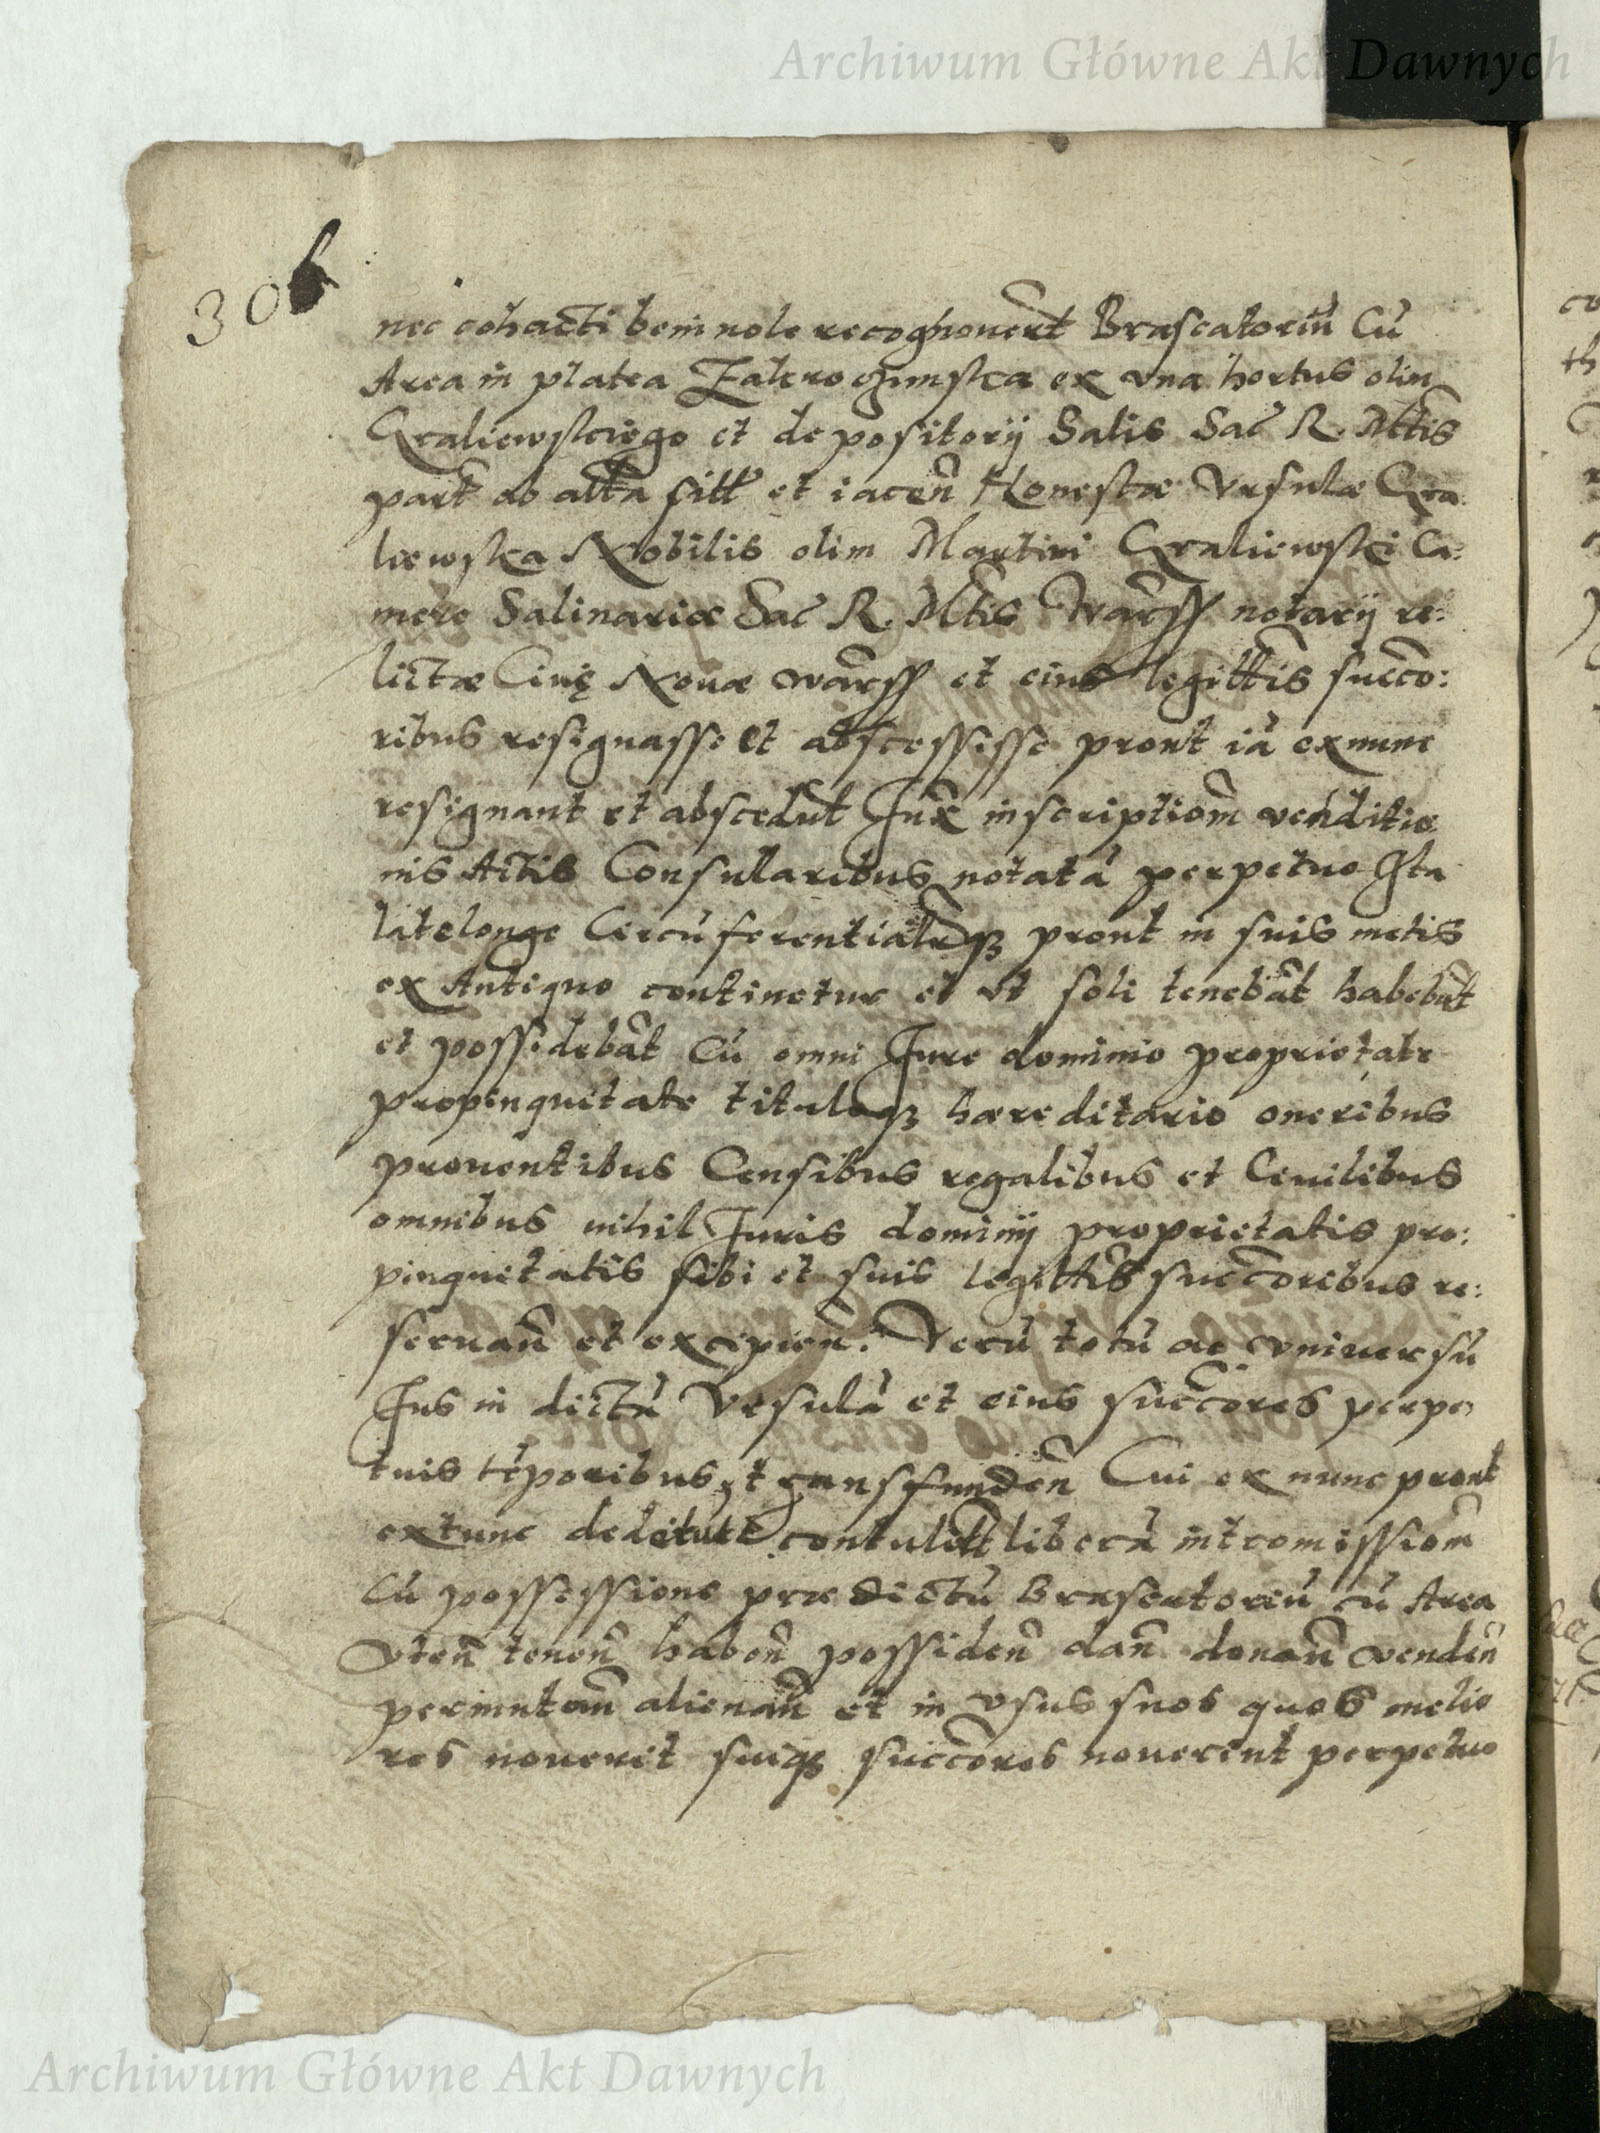 Archiwum Główne Akt Dawnych
306
nec cohacti benìuole recognouerūt Braseatoriū Cū
Area in platea Zakroczimska ex vna hortus olim
Graliewskiego et depositorij Salis Sac R. Mttis
part ab altā sitt et iacen̄ Honestæ Vrsulæ Gra
liewska Nobilis olim Martini Graliewski Ca:
mere Salinariæ Sac R. Mtis Warss notarij re:
lictæ Ciuę Nouæ warss et eius legittīs succo:
ribus resignasse et abscessisse prout iā exnunc
resignant et abscedūt Iux̄ inscriptiom̄ venditio
nis Actis Consularibus notatā perpetuo Ita
late longe Circūferentialrq3 prout in suis metis
ex Antiquo continetur et vt soli tenebāt habebāt
et possidebāt Cū omni Iure dominio proprietate
propinquitate tituloq3 hæreditario oneribus
prouentibus Censibus regalibus et Ciuilibus
omnibus nihil Iuris dominij proprietatis pro:
pinquitatis sibi et suis legittīs succ̄oribus re:
seruan̄ et excipien̄. Verū totū ac vniuersū
Ius in dictā Vrsulā et eius succ̄ores perpe
tuis tēporibus transfunden̄ Cui ex nunc prout
extunc dederūt contulerūt liberā intromissiom̄
Cū possessione prædictū Braseatoriū cū Area
Vten̄ tenen̄ haben̄ possiden̄ dan̄ donan̄ venden̄
permutan̄ alienan̄ et in vsus suos quos melio
res nouerit suiq3 succ̄ores nouerint perpetuo
Archiwum Główne Akt Dawnych